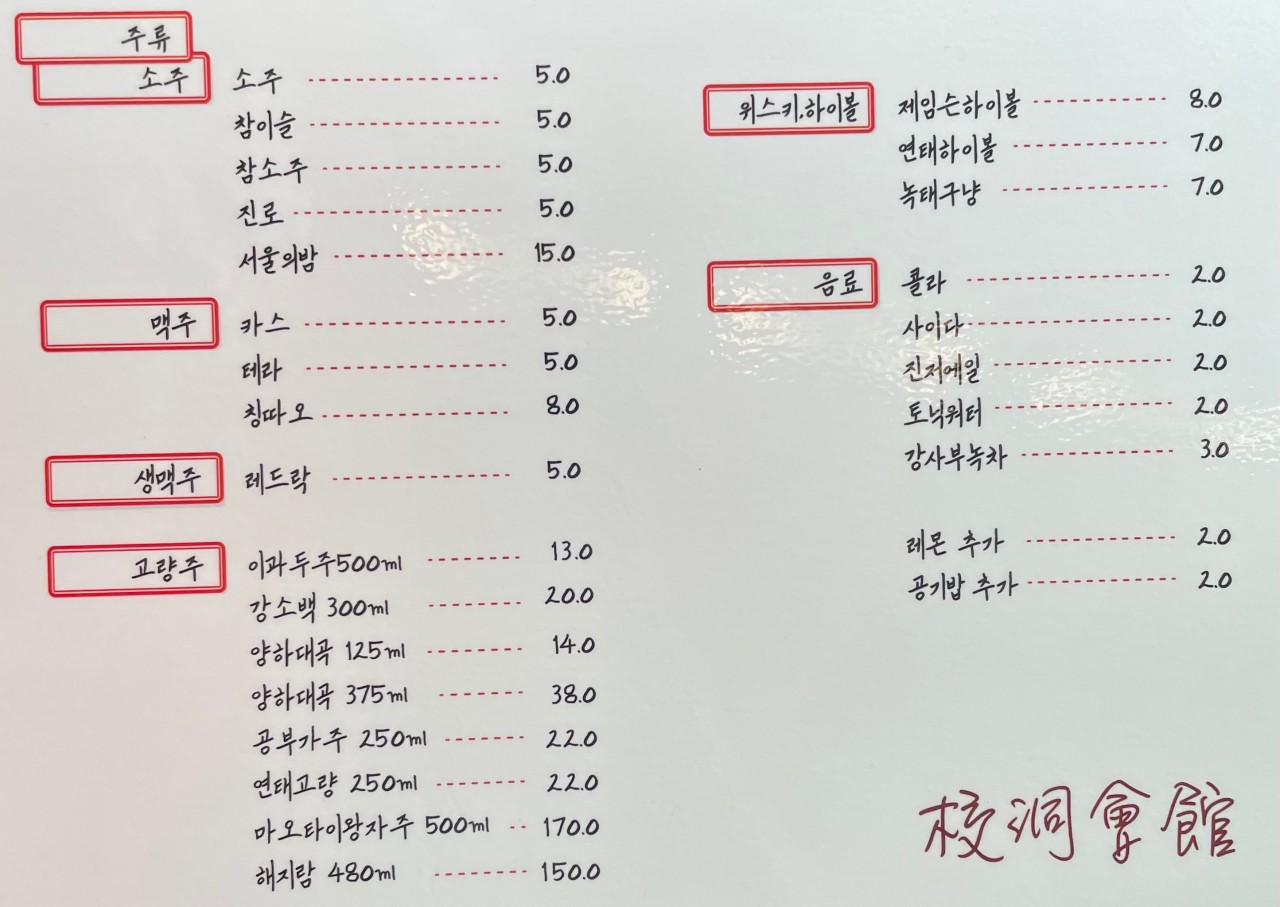 주류
소주
소주 5.0
참이슬 5.0
참소주 5.0
진로 5.0
서울의밤 15.0
맥주
카스 5.0
테라 5.0
칭따오 8.0
생맥주
레드락 5.0
고량주
이과두주500ml 13.0
강소백 300ml 20.0
양하대곡 125ml 14.0
양하대곡 375ml 38.0
공부가주 250ml 22.0
연태고량 250ml 22.0
마오타이왕자주 500ml 170.0
해지람 480ml 150.0
위스키,하이볼
제임슨하이볼 8.0
연태하이볼 7.0
녹태구냥 7.0
음료
콜라 2.0
사이다 2.0
진저에일 2.0
토닉워터 2.0
강사부녹차 3.0
레몬 추가 2.0
공기밥 추가 2.0
校洞會館